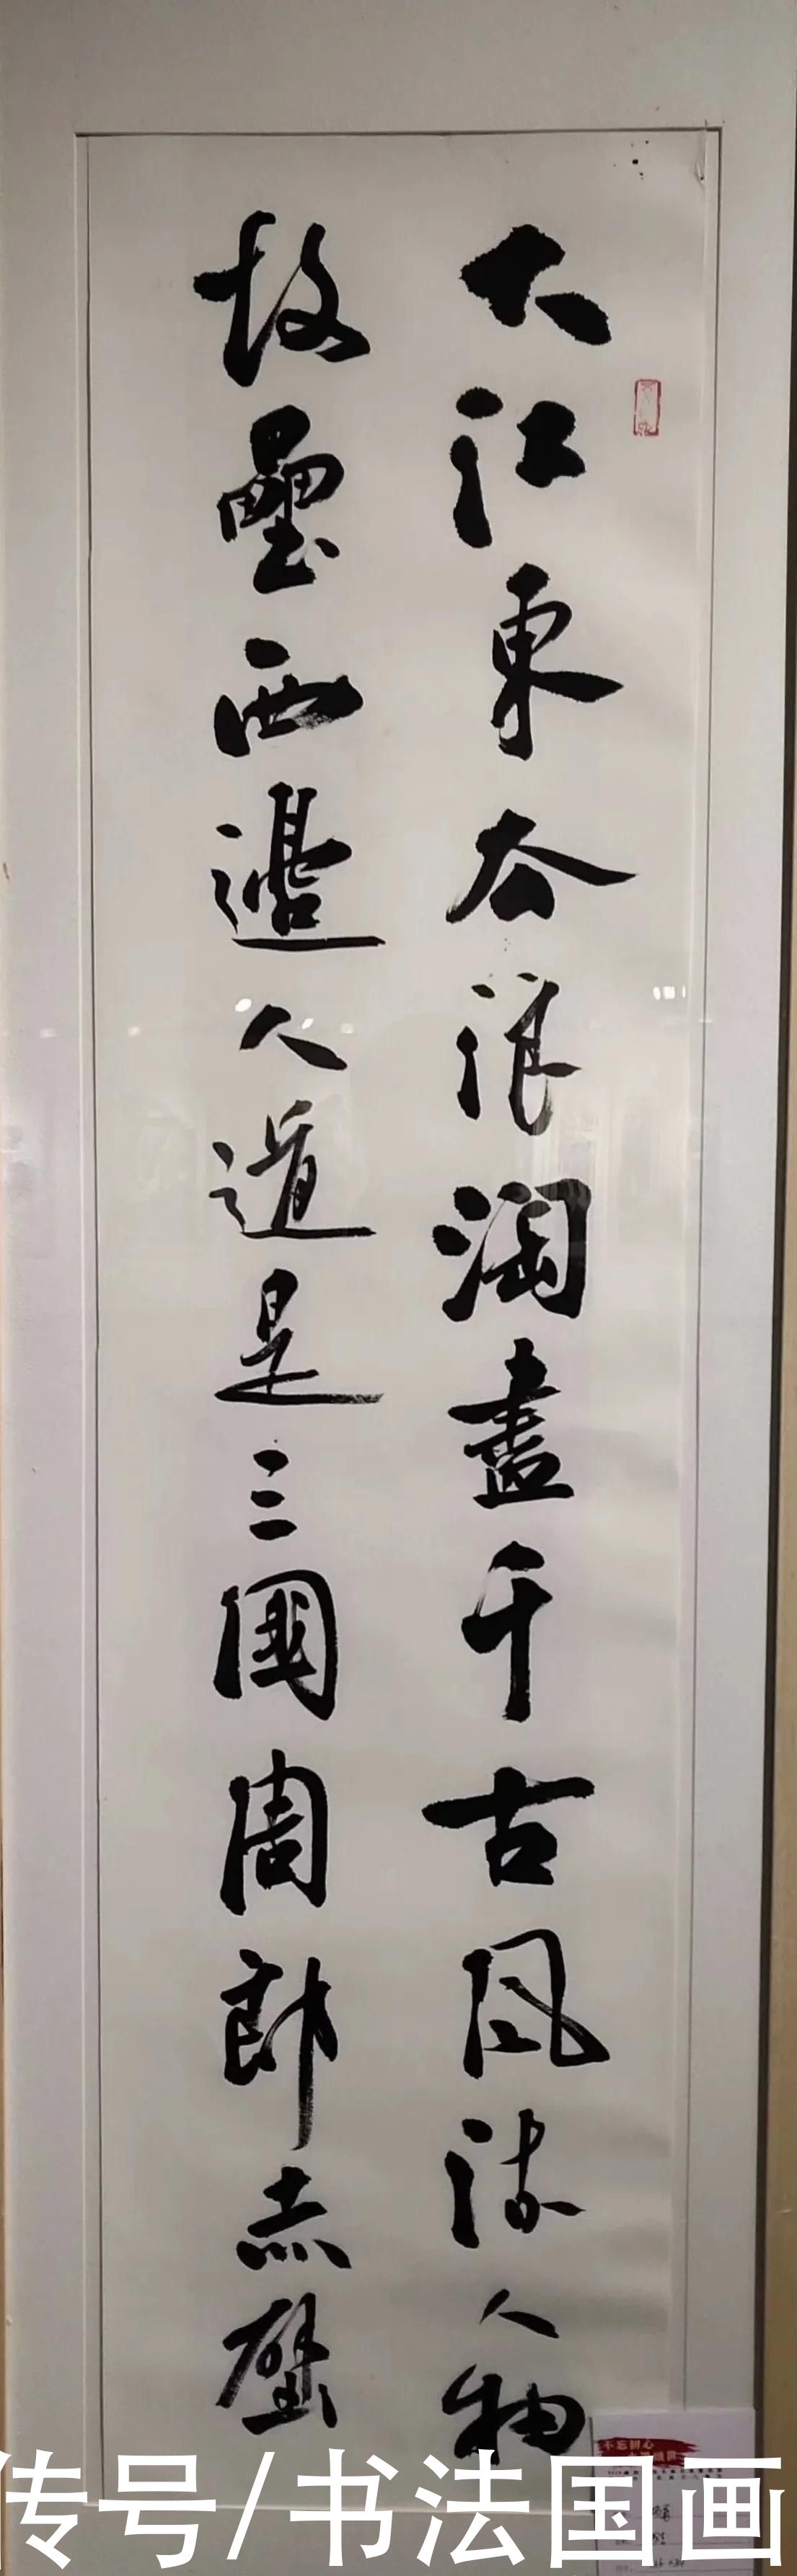 大江東去浪淘盡千古風流人物
故壘西邊人道是三國周郎赤壁
不忘初心
传号/书法国画